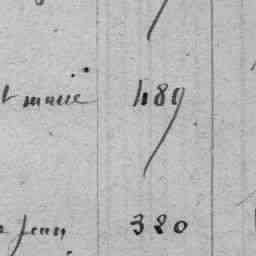 t marie 489
Jean 320